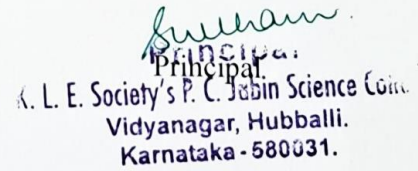 Principal
Principal.
K. L. E. Society's P. C. Jabin Science
Vidyanagar, Hubballi.
Karnataka - 580031.